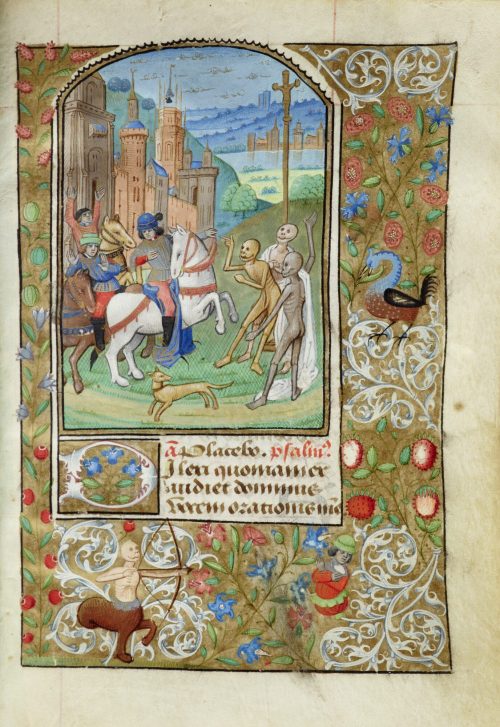 ā Placebo. psalm⁹
Dilexi quoniam ex
audiet dominus
vocem orationis me